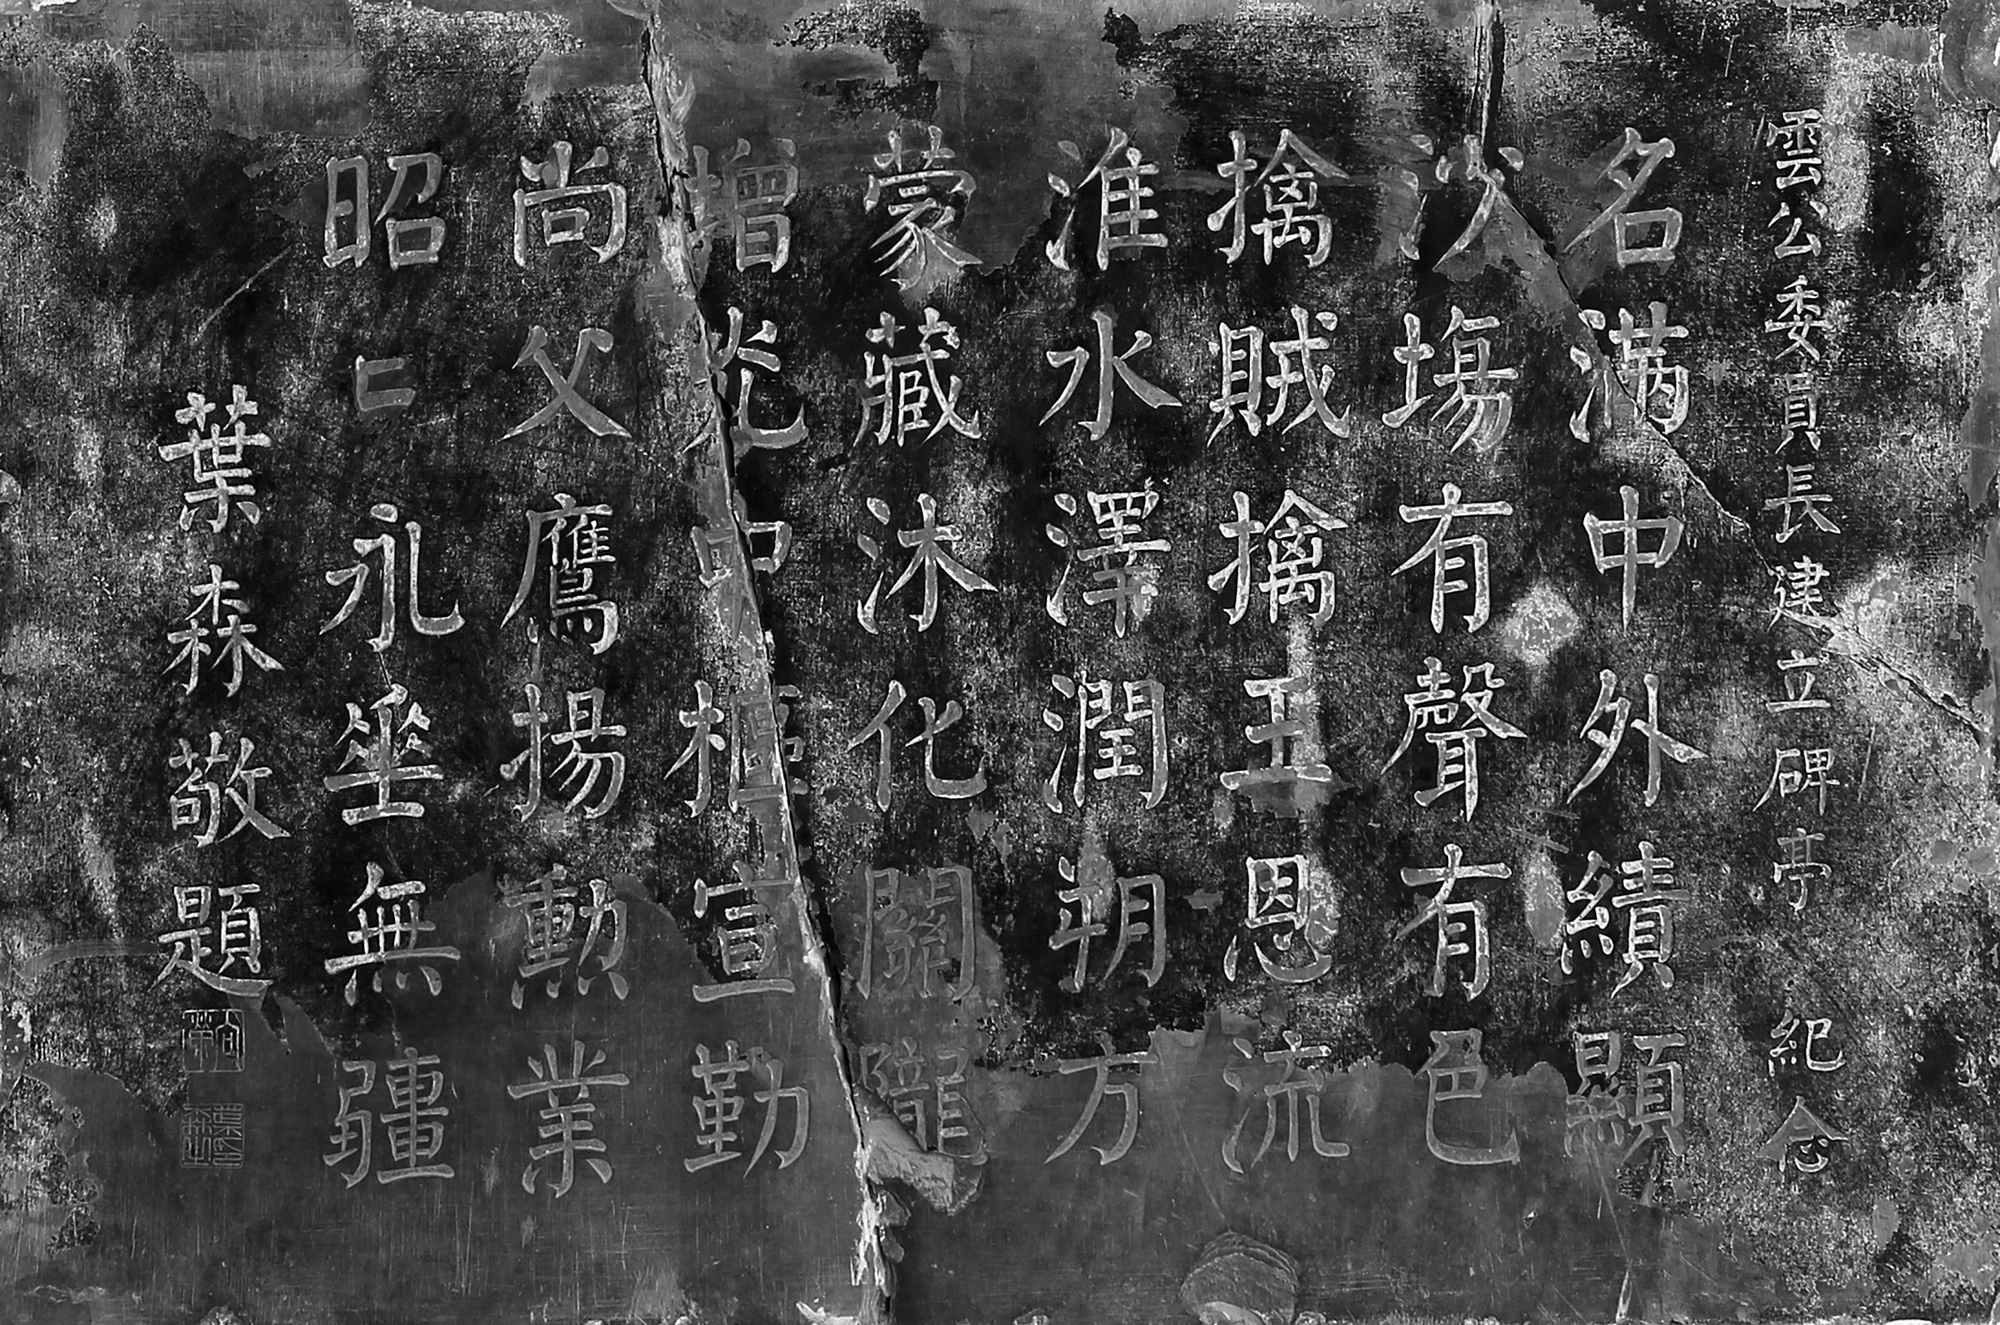 雲公委員長建立碑亭紀念
名滿中外績顯
沙塲有聲有色
擒賊擒王恩流
淮水澤潤朔方
蒙藏沐化關隴
增光中樞宣勤
尚父鷹揚勳業
昭〻永垂無疆
葉森敬題